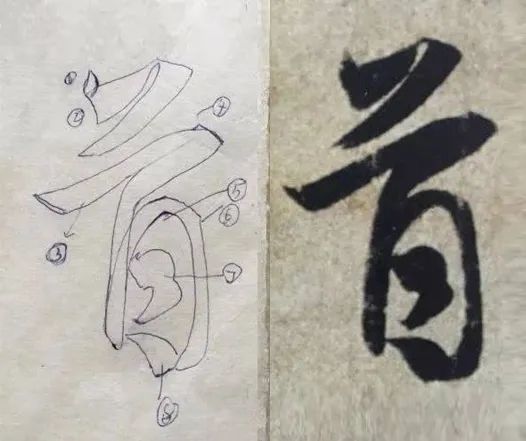 首
① ② ③ ④ ⑤ ⑥ ⑦ ⑧
首